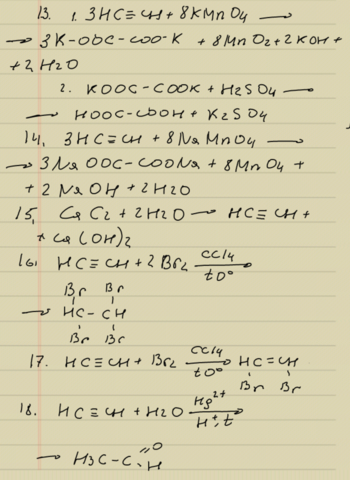 13. 1. 3HC≡CH + 8KMnO4 →
→ 3K-OOC-COO-K + 8MnO2 + 2KOH +
+ 2H2O
2. KOOC-COOK + H2SO4 →
→ HOOC-COOH + K2SO4
14. 3HC≡CH + 8NaMnO4 →
→ 3NaOOC-COONa + 8MnO4 +
+ 2NaOH + 2H2O
15. CaC2 + 2H2O → HC≡CH +
+ Ca(OH)2
16. HC≡CH + 2Br2 CCl4
t0°
Br Br
→ HC-CH
Br Br
17. HC≡CH + Br2 CCl4 → HC=CH
t0° Br Br
18. HC≡CH + H2O Hg2+
H+, t
→ H3C-C=O
H